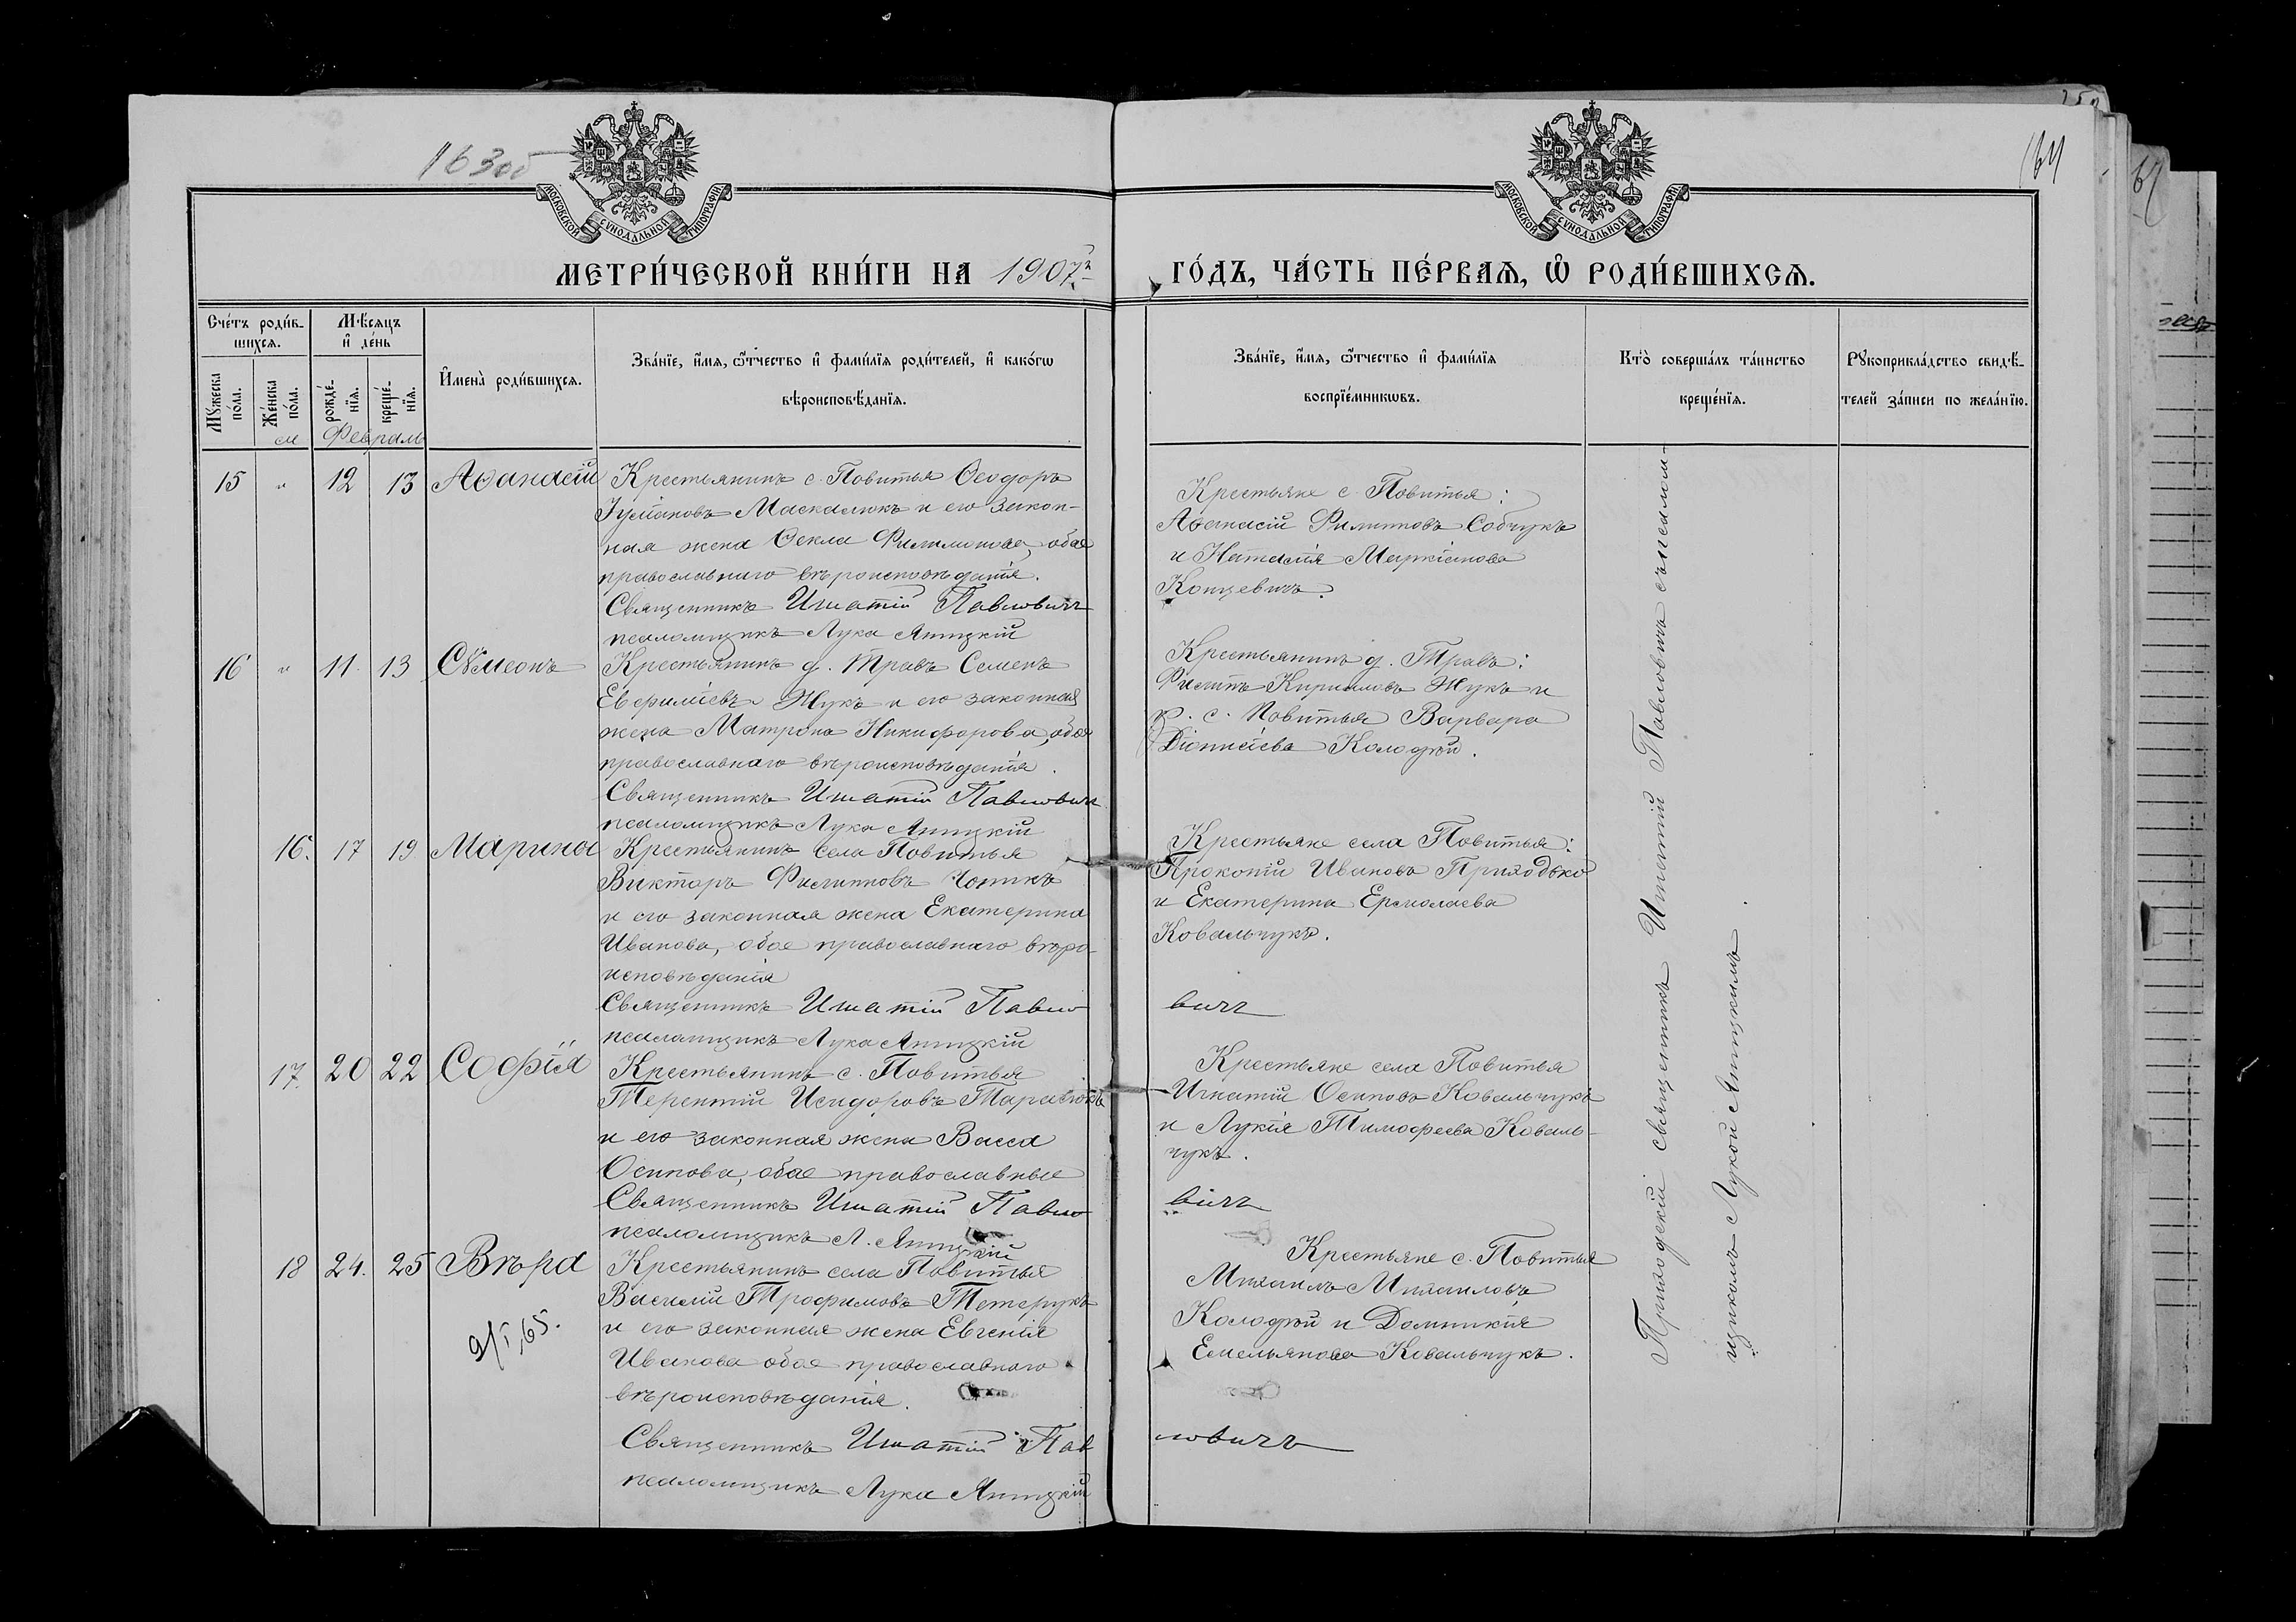 163об
164
МОСКОВСКОЙ СѴНОДАЛЬНОЙ ТИПОГРАФІИ
МОСКОВСКОЙ СѴНОДАЛЬНОЙ ТИПОГРАФІИ
МЕТРИ́ЧЕСКОЙ КНИ́ГИ НА 1907й
ГО́ДЪ, ЧА́СТЬ ПЕ́РВАѦ, Ѡ҆ РОДИ́ВШИХСѦ.
Сче́тъ роди́в-
шихсѧ.
Мꙋжеска по́ла.
Же́нска по́ла.
Мѣ́сѧцъ
и҆ де́нь
рожде́-
нїѧ.
креще́-
нїѧ.
И҆мена̀ роди́вшихсѧ.
Зва́нїе, и҆́мѧ, ѻ҆́тчество и҆ фами́лїѧ роди́телей, и҆ како́гѡ
вѣроисповѣ́данїѧ.
Зва́нїе, и҆́мѧ, ѻ҆́тчество и҆ фами́лїѧ
воспрїе́мникѡвъ.
Кто̀ соверша́лъ та́инство
креще́нїѧ.
Рꙋкоприкла́дство свидѣ́-
телей за́писи по жела́нїю.
м
Февраль
15 " 12 13 Аѳанасій
Крестьянинъ с. Повитья Ѳеодоръ
Іуліановъ Маскалюкъ и его закон-
ная жена Ѳекла Филимонова, обое
православнаго вѣроисповѣданія.
Священникъ Игнатій Павловичъ
псаломщикъ Лука
Крестьяне с. Повитья:
Аѳанасій Филипповъ Собчукъ
и Наталія Маркіанова
Концевичъ.
16 " 11. 13 Сѵмеонъ
Крестьянинъ д. Травъ Семенъ
Евфиміевъ Жукъ и его законная
жена Матрона Никифорова, обое
православнаго вѣроисповѣданія.
Священникъ Игнатій Павловичъ
псаломщикъ Лука
Крестьянинъ д. Травъ:
Филиппъ Кирилловъ Жукъ и
кр. с. Повитья Варвара
Діонисіева Колодѣй.
16. 17 19 Марина
Крестьянинъ села Повитья
Викторъ Филипповъ
и его законная жена Екатерина
Иванова, обое православнаго вѣро-
исповѣданія
Священникъ Игнатій Павло
вичъ
псаломщикъ Лука
Крестьяне села Повитья:
Прокопій Ивановъ Приходько
и Екатерина Ермолаева
Ковальчукъ.
17. 20 22 Софія
Крестьянинъ с. Повитья
Терентій Исидоровъ Тарасюкъ
и его законная жена Васса
Осипова, обое православные
Священникъ Игнатій Павло
вичъ
псаломщикъ Л.
Крестьяне села Повитья
Игнатій Осиповъ Ковальчукъ
и Лукія Тимофеева Коваль-
чукъ.
18 24. 25 Вѣра
Крестьянинъ села Повитья
Василій Трофимовъ Тетерукъ
и его законная жена Евгенія
Иванова обое православнаго
вѣроисповѣданія.
Священникъ Игнатій Пав
ловичъ
псаломщикъ Лука
Крестьяне с. Повитья
Михаилъ Михаиловъ
Колодѣй и Домникія
Емельянова Ковальчукъ.
Приходскій священникъ Игнатій Павловичъ съ псалом-
щикомъ Лукой